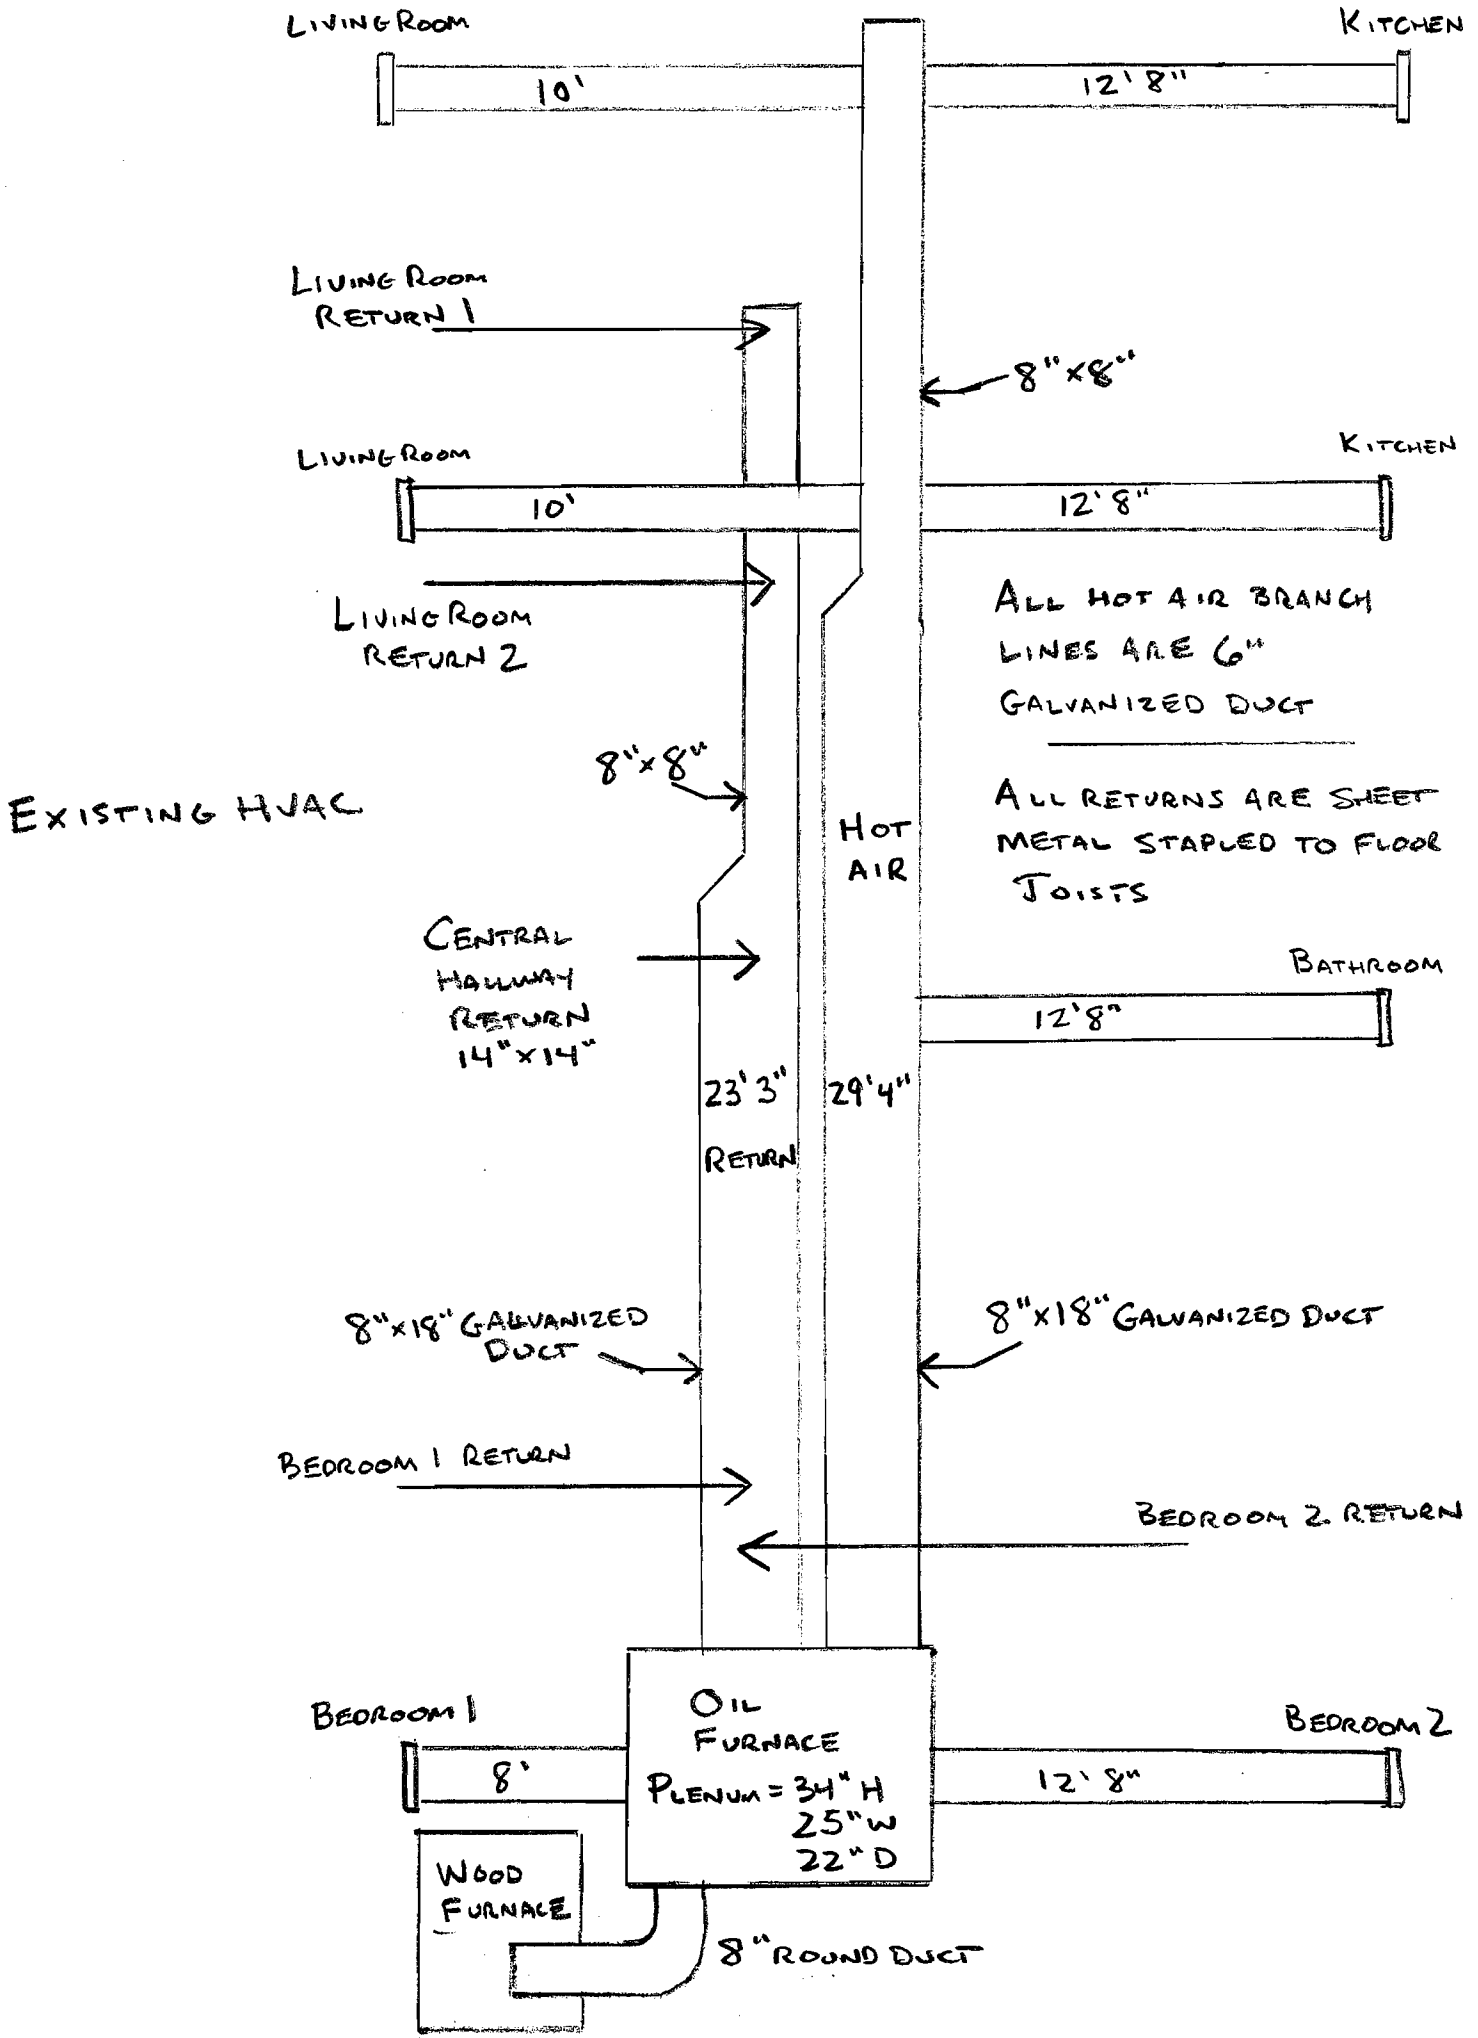 LIVING ROOM
KITCHEN
10'
12'8"
LIVING ROOM
RETURN 1
8"x8"
LIVING ROOM
KITCHEN
10'
12'8"
LIVING ROOM
RETURN 2
ALL HOT AIR BRANCH
LINES ARE 6"
GALVANIZED DUCT
8"x8"
EXISTING HVAC
HOT
AIR
ALL RETURNS ARE SHEET
METAL STAPLED TO FLOOR
JOISTS
CENTRAL
HALLWAY
RETURN
14"x14"
BATHROOM
12'8"
23'3"
29'4"
RETURN
8"x18" GALVANIZED
DUCT
8"x18" GALVANIZED DUCT
BEDROOM 1 RETURN
BEDROOM 2 RETURN
BEDROOM 1
OIL
FURNACE
PLENUM = 34" H
25" W
22" D
BEDROOM 2
8'
12'8"
WOOD
FURNACE
8" ROUND DUCT